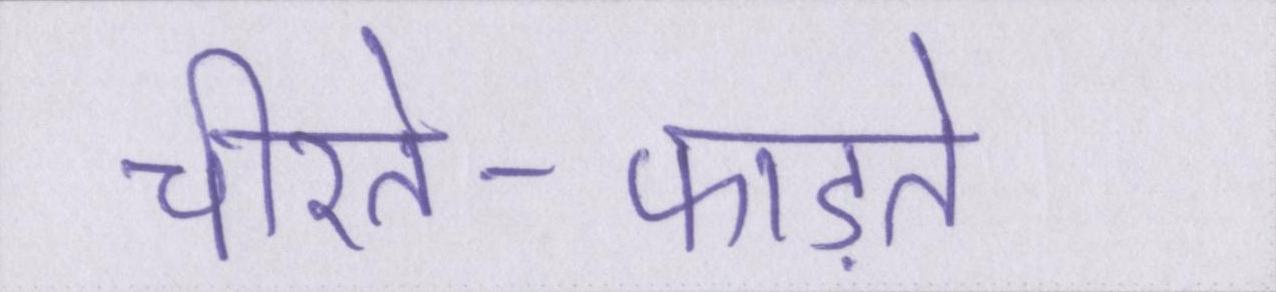 चीरते-फाड़ते